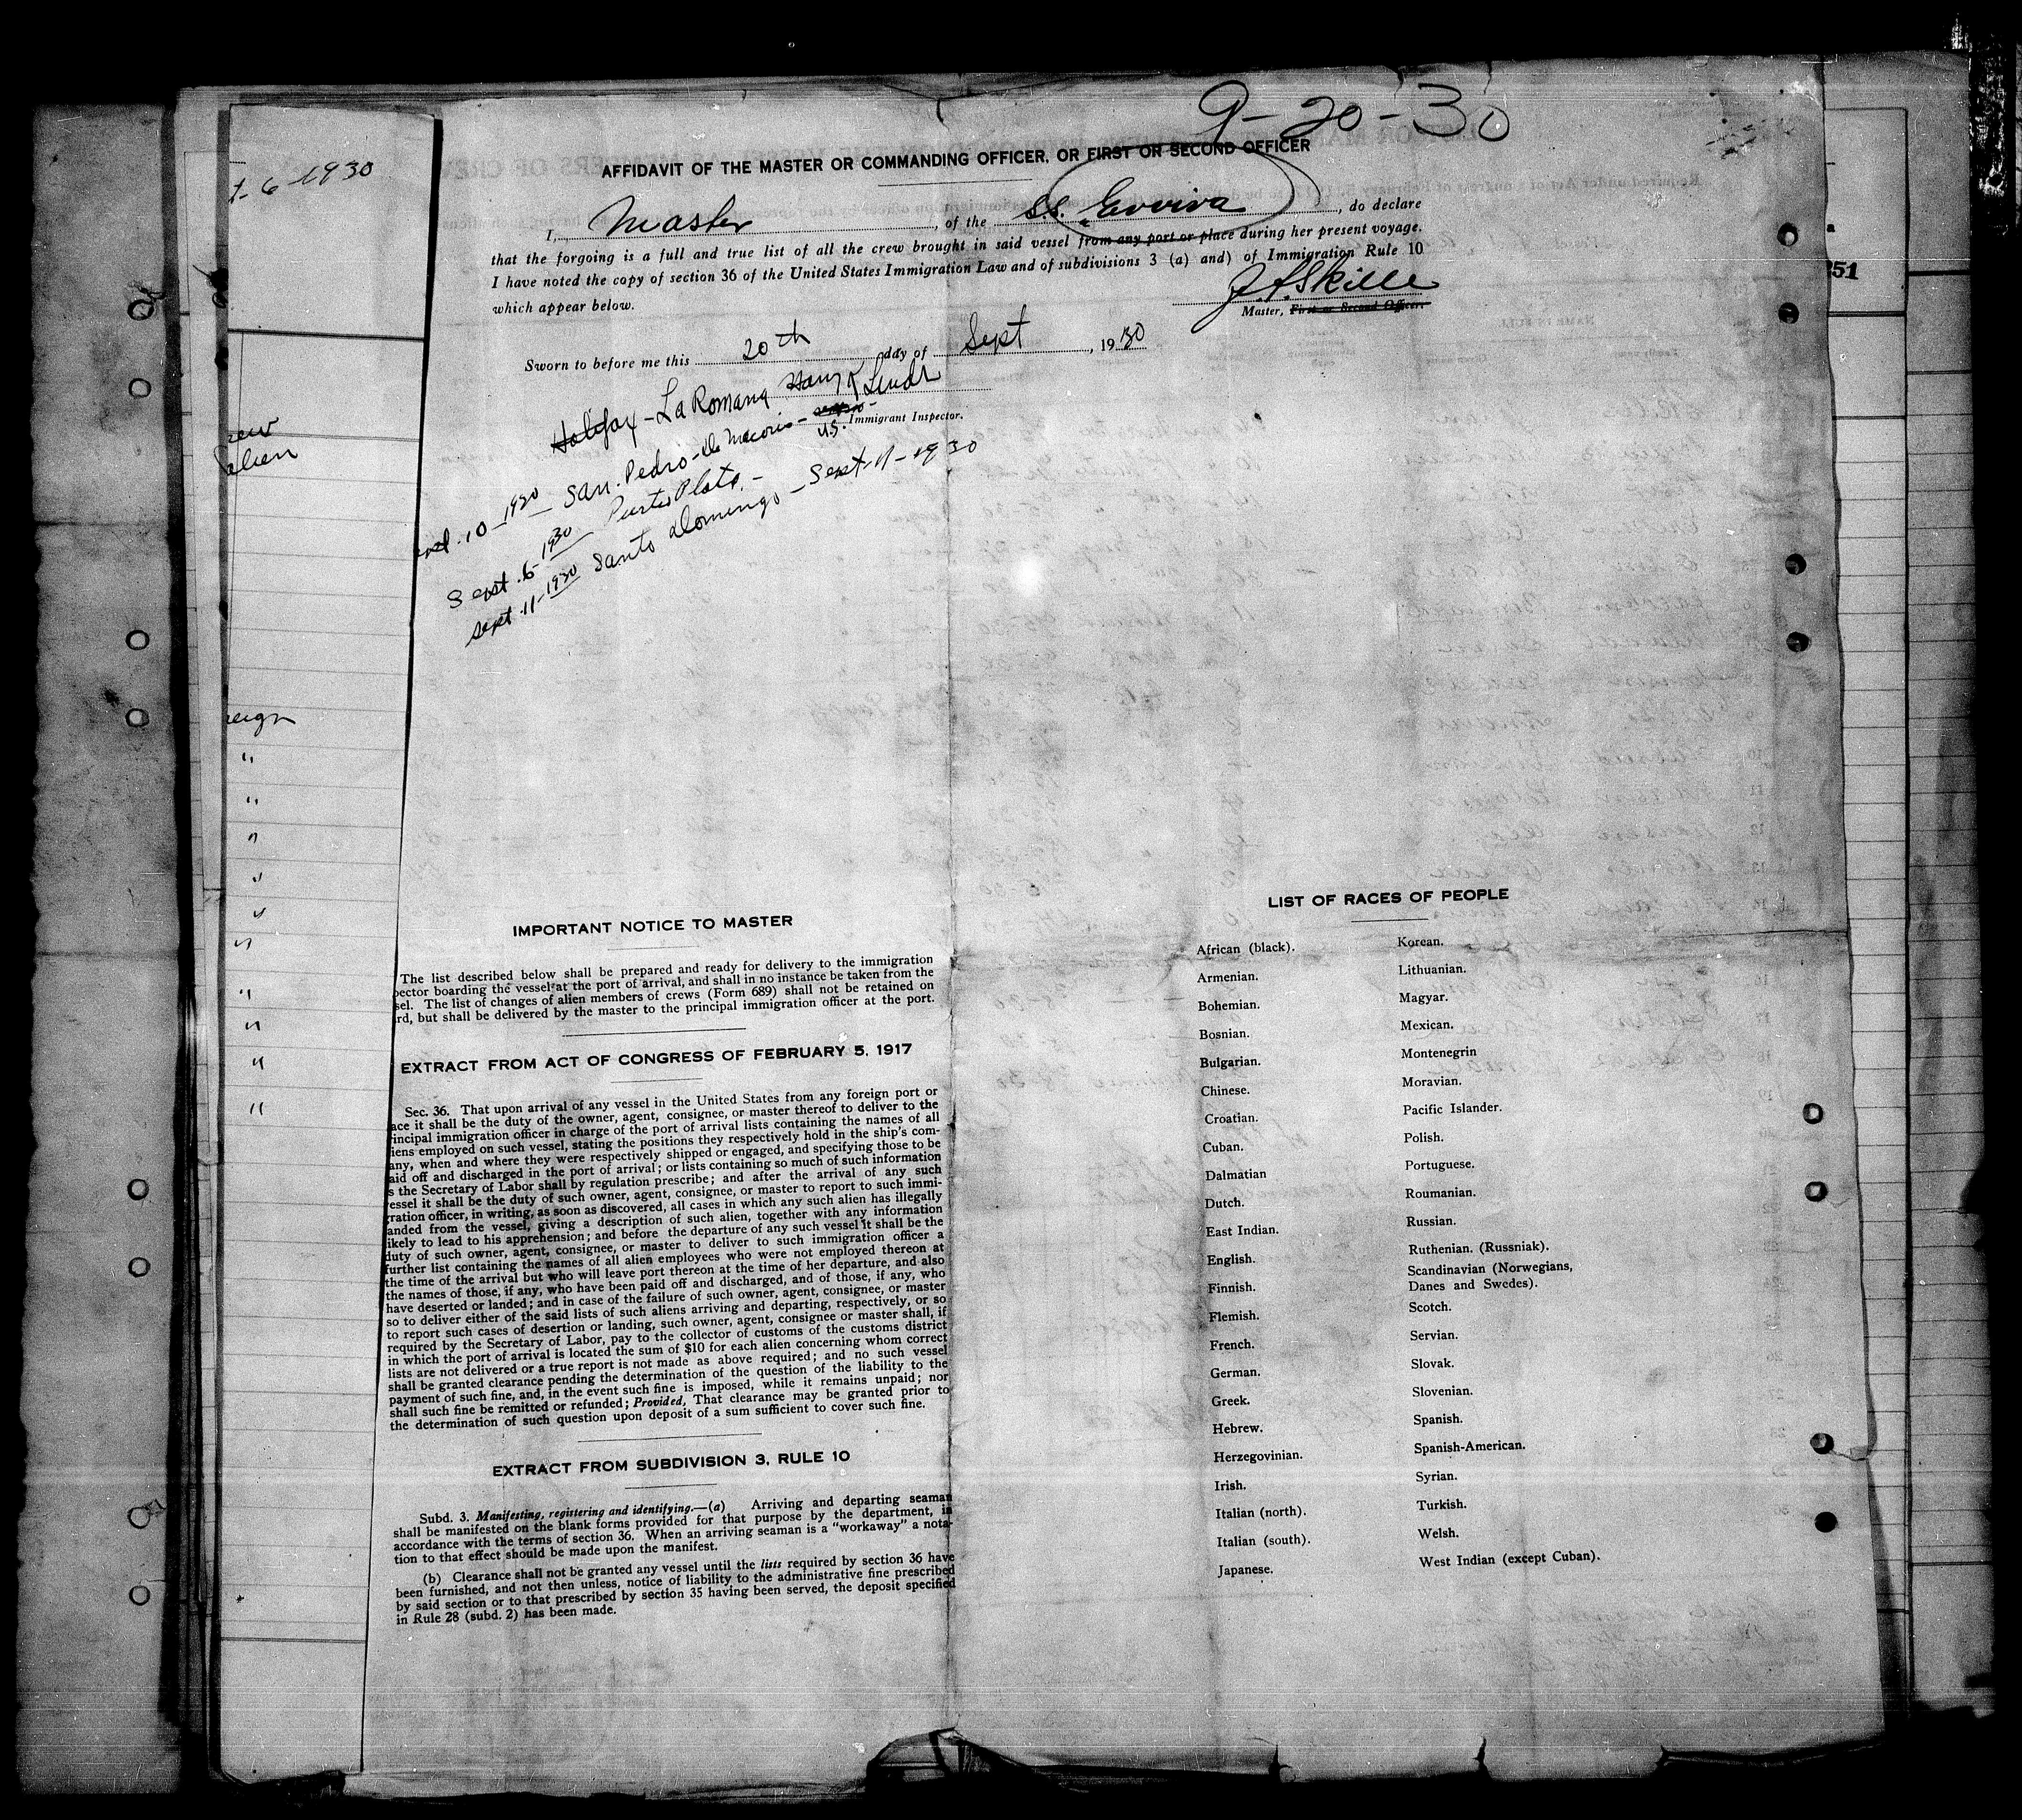 9-20-30
AFFIDAVIT OF THE MASTER OR COMMANDING OFFICER, OR FIRST OR SECOND OFFICER
I, Master, of the SS. Evviva, do declare
that the forgoing is a full and true list of all the crew brought in said vessel from any port or place during her present voyage.
I have noted the copy of section 36 of the United States Immigration Law and of subdivisions 3 (a) and) of Immigration Rule 10
which appear below.
J. A. Skille
Master, First or Second Officer.
Sworn to before me this 20th day of Sept, 1930
Halifax - La Romana
U.S. Immigrant Inspector.
10-1930 - San. Pedro-de Macoris -
Sept. 6-1930 Puerto Plata. -
Sept. 11-1930 Santo Domingo - Sept-11-1930
6-1930
alien
eign
"
"
"
"
"
"
"
"
"
"
51
IMPORTANT NOTICE TO MASTER
The list described below shall be prepared and ready for delivery to the immigration
pector boarding the vessel at the port of arrival, and shall in no instance be taken from the
sel. The list of changes of alien members of crews (Form 689) shall not be retained on
rd, but shall be delivered by the master to the principal immigration officer at the port.
EXTRACT FROM ACT OF CONGRESS OF FEBRUARY 5, 1917
Sec. 36. That upon arrival of any vessel in the United States from any foreign port or
ace it shall be the duty of the owner, agent, consignee, or master thereof to deliver to the
rincipal immigration officer in charge of the port of arrival lists containing the names of all
iens employed on such vessel, stating the positions they respectively hold in the ship's com-
any, when and where they were respectively shipped or engaged, and specifying those to be
aid off and discharged in the port of arrival; or lists containing so much of such information
s the Secretary of Labor shall by regulation prescribe; and after the arrival of any such
essel it shall be the duty of such owner, agent, consignee, or master to report to such immi-
gration officer, in writing, as soon as discovered, all cases in which any such alien has illegally
anded from the vessel, giving a description of such alien, together with any information
ikely to lead to his apprehension; and before the departure of any such vessel it shall be the
duty of such owner, agent, consignee, or master to deliver to such immigration officer a
further list containing the names of all alien employees who were not employed thereon at
the time of the arrival but who will leave port thereon at the time of her departure, and also
the names of those, if any, who have been paid off and discharged, and of those, if any, who
have deserted or landed; and in case of the failure of such owner, agent, consignee, or master
so to deliver either of the said lists of such aliens arriving and departing, respectively, or so
to report such cases of desertion or landing, such owner, agent, consignee or master shall, if
required by the Secretary of Labor, pay to the collector of customs of the customs district
in which the port of arrival is located the sum of $10 for each alien concerning whom correct
lists are not delivered or a true report is not made as above required; and no such vessel
shall be granted clearance pending the determination of the question of the liability to the
payment of such fine, and, in the event such fine is imposed, while it remains unpaid; nor
shall such fine be remitted or refunded; Provided, That clearance may be granted prior to
the determination of such question upon deposit of a sum sufficient to cover such fine.
EXTRACT FROM SUBDIVISION 3, RULE 10
Subd. 3. Manifesting, registering and identifying.—(a) Arriving and departing seaman
shall be manifested on the blank forms provided for that purpose by the department, in
accordance with the terms of section 36. When an arriving seaman is a "workaway" a nota-
tion to that effect should be made upon the manifest.
(b) Clearance shall not be granted any vessel until the lists required by section 36 have
been furnished, and not then unless, notice of liability to the administrative fine prescribed
by said section or to that prescribed by section 35 having been served, the deposit specified
in Rule 28 (subd. 2) has been made.
LIST OF RACES OF PEOPLE
African (black).
Armenian.
Bohemian.
Bosnian.
Bulgarian.
Chinese.
Croatian.
Cuban.
Dalmatian
Dutch.
East Indian.
English.
Finnish.
Flemish.
French.
German.
Greek.
Hebrew.
Herzegovinian.
Irish.
Italian (north).
Italian (south).
Japanese.
Korean.
Lithuanian.
Magyar.
Mexican.
Montenegrin
Moravian.
Pacific Islander.
Polish.
Portuguese.
Roumanian.
Russian.
Ruthenian. (Russniak).
Scandinavian (Norwegians,
Danes and Swedes).
Scotch.
Servian.
Slovak.
Slovenian.
Spanish.
Spanish-American.
Syrian.
Turkish.
Welsh.
West Indian (except Cuban).